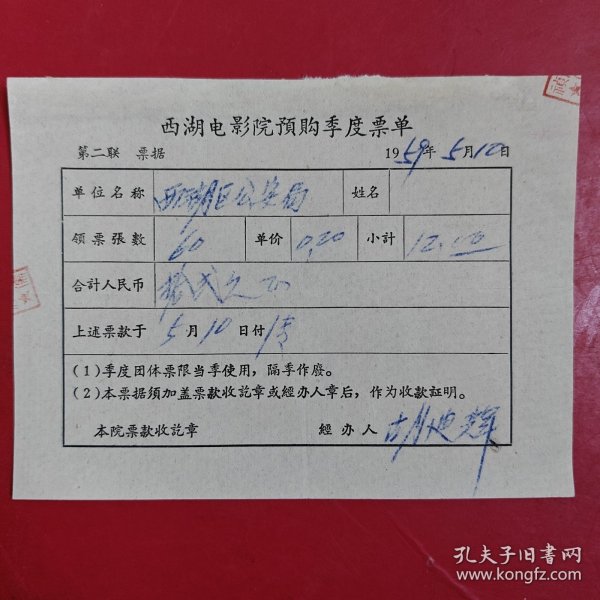 西湖电影院預购季度票单
第二联 票据 1959年5月10日
单位名称 西湖区公安局 姓名
領票張數 60 单价 0.20 小計 12.00
合計人民币
上述票款于 5月10日付清
(1)季度团体票限当季使用，隔季作廢。
(2)本票据须加盖票款收訖章或經办人章后，作为收款証明。
本院票款收訖章 經办人
孔夫子旧书网
www.kongfz.com